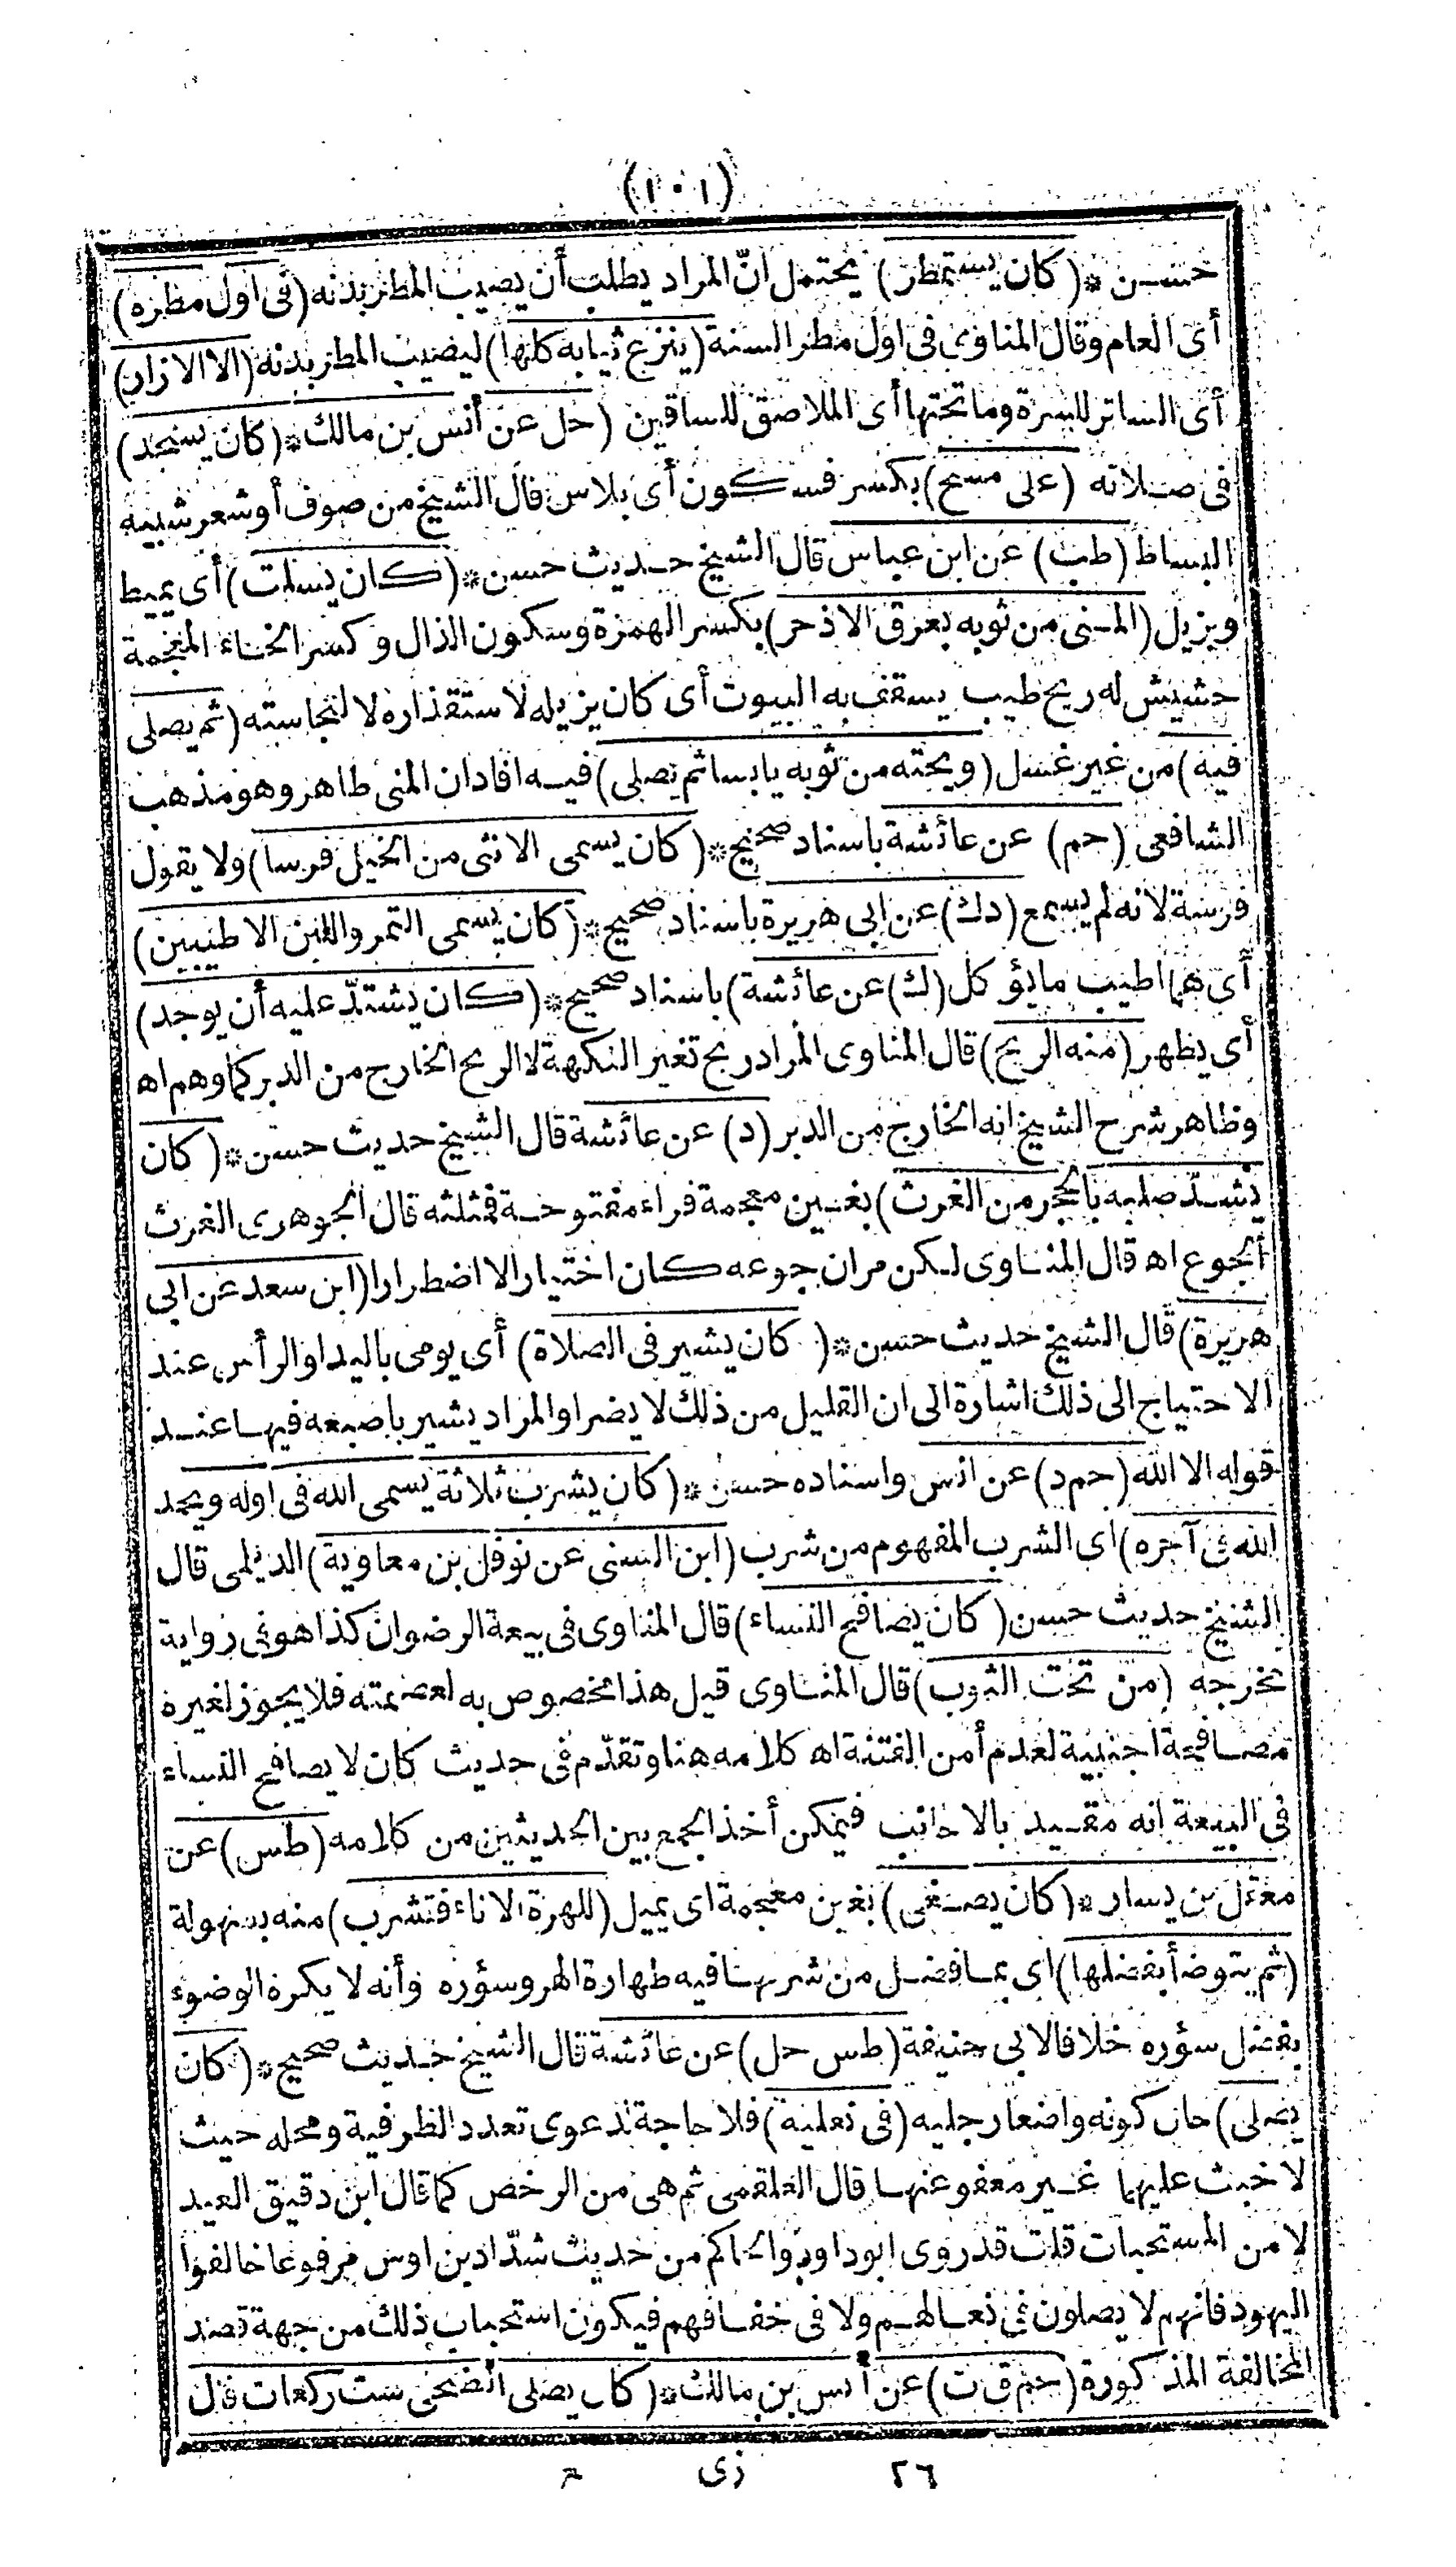 (١٠١)
حسن *(كان يستمطر) يحتمل انّ المراد يطلب أن يصيب المطر بدنه (فى اول مطره)
أى العام وقال المناوى فى اول مطر السنة (ينزع ثيابه كلها) ليصيب المطر بدنه (الا الازار)
أى الساتر للسرة وما تحتها أى الملاصق للساقين (حل عن أنس بن مالك *(كان يسجد)
فى صلاته (على مسح) بكسر فسكون أى بلاس قال الشيخ من صوف أوشعر شبيه
البساط (طب) عن ابن عباس قال الشيخ حديث حسن *(كان يسلت) أى يميط
ويزيل (المنى من ثوبه بعرق الاذخر) بكسر الهمزة وسكون الذال وكسر الخاء المعجمة
حشيش له ريح طيب يسقف به البيوت أى كان يزيله لاستقذاره لا لنجاسته (ثم يصلى
فيه) من غير غسل (ويحته من ثوبه يابسا ثم يصلى) فيه افاد ان المنى طاهر وهو مذهب
الشافعى (حم) عن عائشة باسناد صحيح *(كان يسمى الانثى من الخيل فرسا) ولا يقول
فرسة لانه لم يسمع (دك) عن ابى هريرة باسناد صحيح *(كان يسمى التمر واللبن الاطيبين)
أى هما اطيب ما يؤكل (ك) عن عائشة) باسناد صحيح *(كان يشتدّ عليه أن يوجد)
أى يظهر (منه الريح) قال المناوى المراد ريح تغير النكهة لا الريح الخارج من الدبر كما وهم اه
وظاهر شرح الشيخ انه الخارج من الدبر (د) عن عائشة قال الشيخ حديث حسن *(كان
يشدّ صلبه بالحجر من الغرث) بغين معجمة فراء مفتوحة فمثلثة قال الجوهرى الغرث
الجوع اه قال المناوى لكن مر ان جوعه كان اختيارا لا اضطرارا (ابن سعد عن ابى
هريرة) قال الشيخ حديث حسن *( كان يشير فى الصلاة) أى يومى باليد او الرأس عند
الاحتياج الى ذلك اشارة الى ان القليل من ذلك لا يضر او المراد يشير باصبعه فيها عند
قوله الا الله (حم د) عن انس واسناده حسن *(كان يشرب ثلاثة يسمى الله فى اوله ويحمد
الله فى آخره) اى الشرب المفهوم من شرب (ابن السنى عن نوفل بن معاوية) الديلمى قال
الشيخ حديث حسن (كان يصافح النساء) قال المناوى فى بيعة الرضوان كذا هو فى رواية
مخرجه (من تحت الثوب) قال المناوى قيل هذا مخصوص به لعصمته فلا يجوز لغيره
مصافحة اجنبية لعدم أمن الفتنة اه كلامه هنا وتقدّم فى حديث كان لا يصافح النساء
فى البيعة انه مقيد بالاجانب فيمكن أخذ الجمع بين الحديثين من كلامه (طس) عن
معقل بن يسار *(كان يصغى) بغين معجمة اى يميل (للهرة الاناء فتشرب) منه بسهولة
(ثم يتوضأ بفضلها) اى بما فضل من شربها فيه طهارة الهر وسؤره وأنه لا يكره الوضوء
بفضل سؤره خلافا لابى حنيفة (طس حل) عن عائشة قال الشيخ حديث صحيح *(كان
يصلى) حال كونه واضعا رجليه (فى نعليه) فلا حاجة لدعوى تعدد الظرفية ومحله حيث
لا خبث عليهما غير معفو عنها قال العلقمى ثم هى من الرخص كما قال ابن دقيق العيد
لا من المستحبات قلت قد روى ابو داود والحاكم من حديث شدّاد بن اوس مرفوعا خالفوا
اليهود فانهم لا يصلون فى نعالهم ولا فى خفافهم فيكون استحباب ذلك من جهة قصد
المخالفة المذكورة (حم ق ت) عن أنس بن مالك *(كان يصلى الضحى ست ركعات قال
٢٦ زى